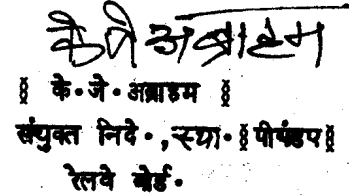 के जे अब्राहम
§ के॰ जे॰ अब्राहम §
संयुक्त निदे॰, स्था॰ § पीएंडए §
रेलवे बोर्ड॰